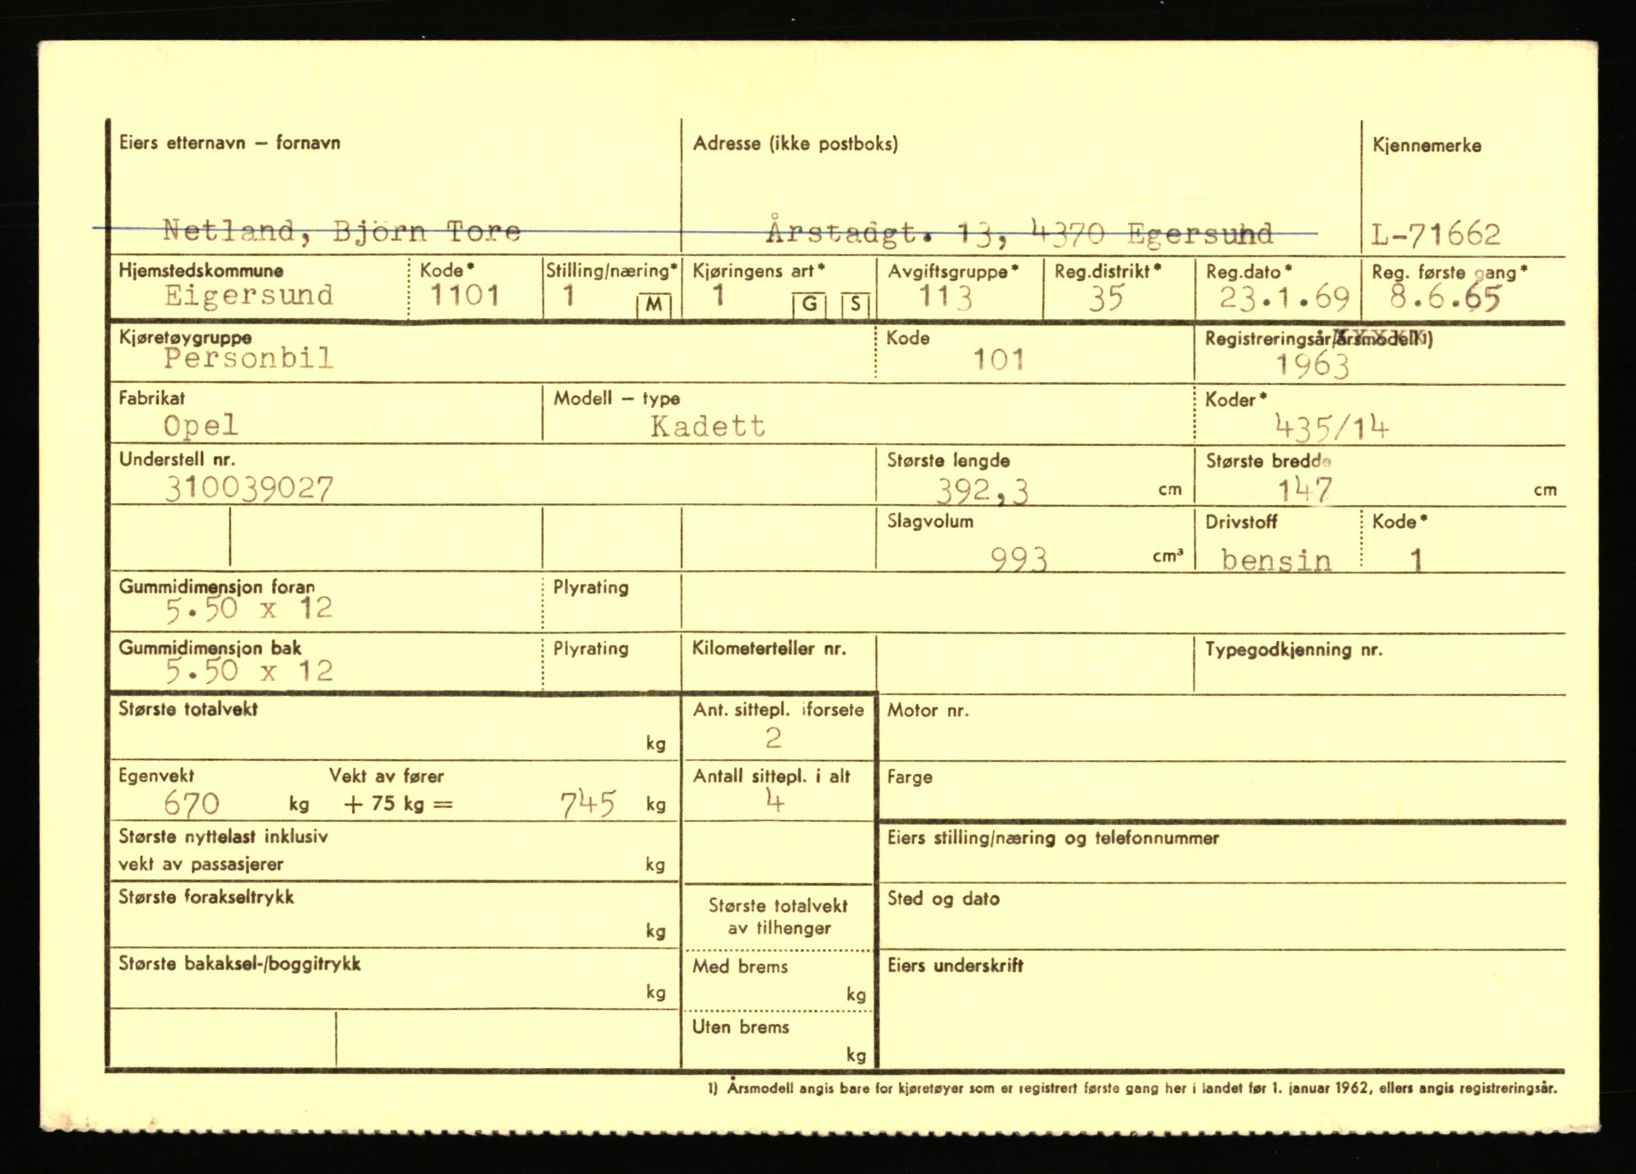 Eiers etternavn – fornavn Adresse (ikke postboks) Kjennemerke
Netland, Björn Tore Årstadgt. 13, 4370 Egersund L-71662
Hjemstedskommune Kode* Stilling/næring* Kjøringens art* Avgiftsgruppe* Reg.distrikt* Reg.dato* Reg. første gang*
Eigersund 1101 1 M 1 G S 113 35 23.1.69 8.6.65
Kjøretøygruppe Kode Registreringsår/årsmodell 1)
Personbil 101 1963
Fabrikat Modell – type Koder*
Opel Kadett 435/14
Understell nr. Største lengde Største bredde
310039027 392,3 cm 147 cm
Slagvolum Drivstoff Kode*
993 cm³ bensin 1
Gummidimensjon foran Plyrating
5.50 x 12
Gummidimensjon bak Plyrating Kilometerteller nr. Typegodkjenning nr.
5.50 x 12
Største totalvekt Ant. sittepl. iforsete Motor nr.
kg 2
Egenvekt Vekt av fører Antall sittepl. i alt Farge
670 kg + 75 kg = 745 kg 4
Største nyttelast inklusiv Eiers stilling/næring og telefonnummer
vekt av passasjerer kg
Største forakseltrykk Største totalvekt Sted og dato
kg av tilhenger
Største bakaksel-/boggitrykk Med brems Eiers underskrift
kg kg
Uten brems
kg
1) Årsmodell angis bare for kjøretøyer som er registrert første gang her i landet før 1. januar 1962, ellers angis registreringsår.